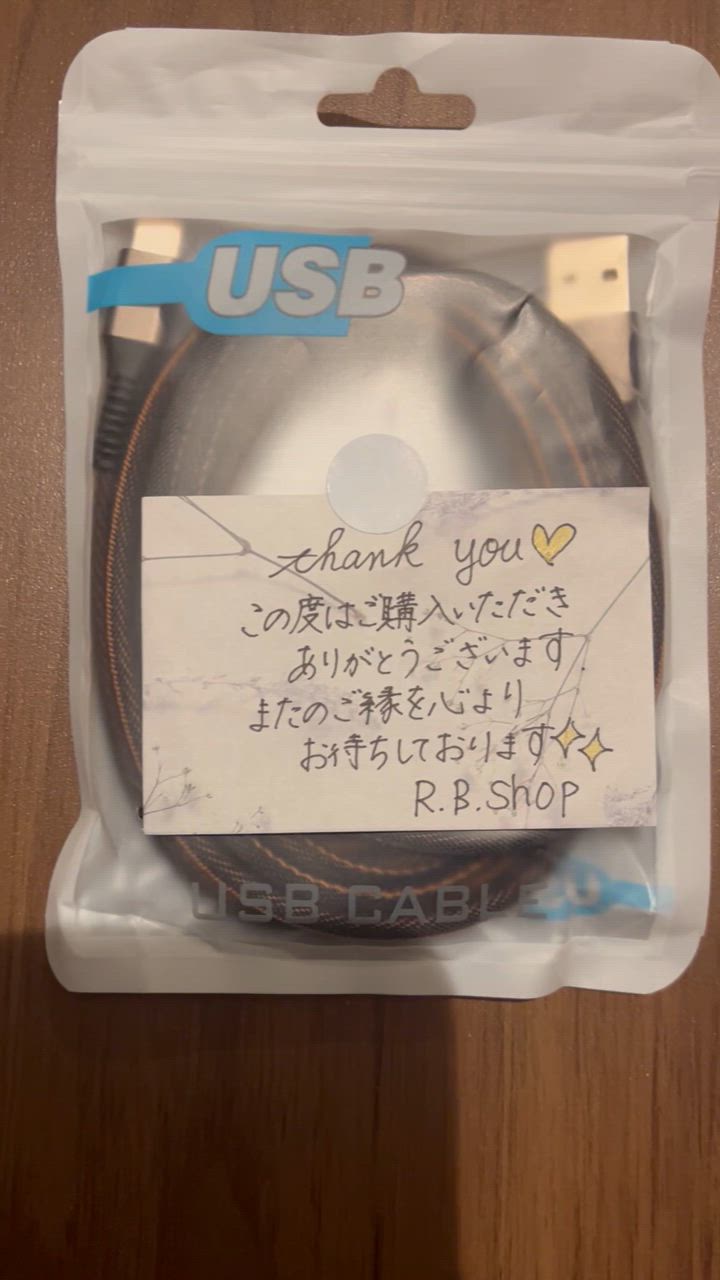 USB
thank you
この度はご購入いただき
ありがとうございます.
またのご縁を心より
お待ちしております
R.B.Shop
USB CABLE